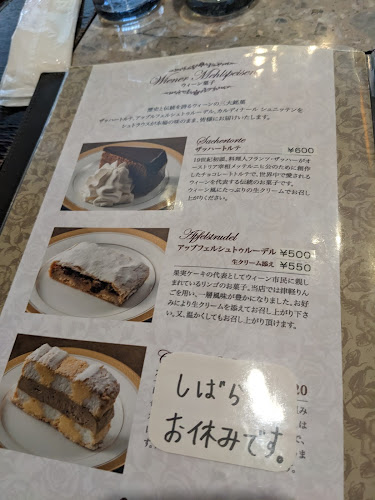 Wiener Mehlspeisen
ウィーン菓子
歴史と伝統を誇るウィーンの三大銘菓
ザッハートルテ、アップフェルシュトゥルーデル、カルディナール シュニッテンを
シュトラウス1号様の味のまま、皆様にお届けいたします。
Sachertorte
ザッハートルテ ¥600
19世紀初頭、料理人フランツ・ザッハーがオー
ストリア宰相メッテルニヒ公のために創作し
たチョコレートトルテで、世界中で愛される
ウィーンを代表する伝統のお菓子です。
ウィーン風にたっぷりの生クリームでお召し
上がりください。
Apfelstrudel
アップフェルシュトゥルーデル ¥500
生クリーム添え ¥550
果実ケーキの代表としてウィーン市民に親し
まれているリンゴのお菓子。当店では津軽りん
ごを用い、一層風味が豊かになりました。お好
みにより生クリームを添えてお召し上がり下さ
い。又、温かくしてもお召し上がり頂けます。
20
しばらく
お休みです。